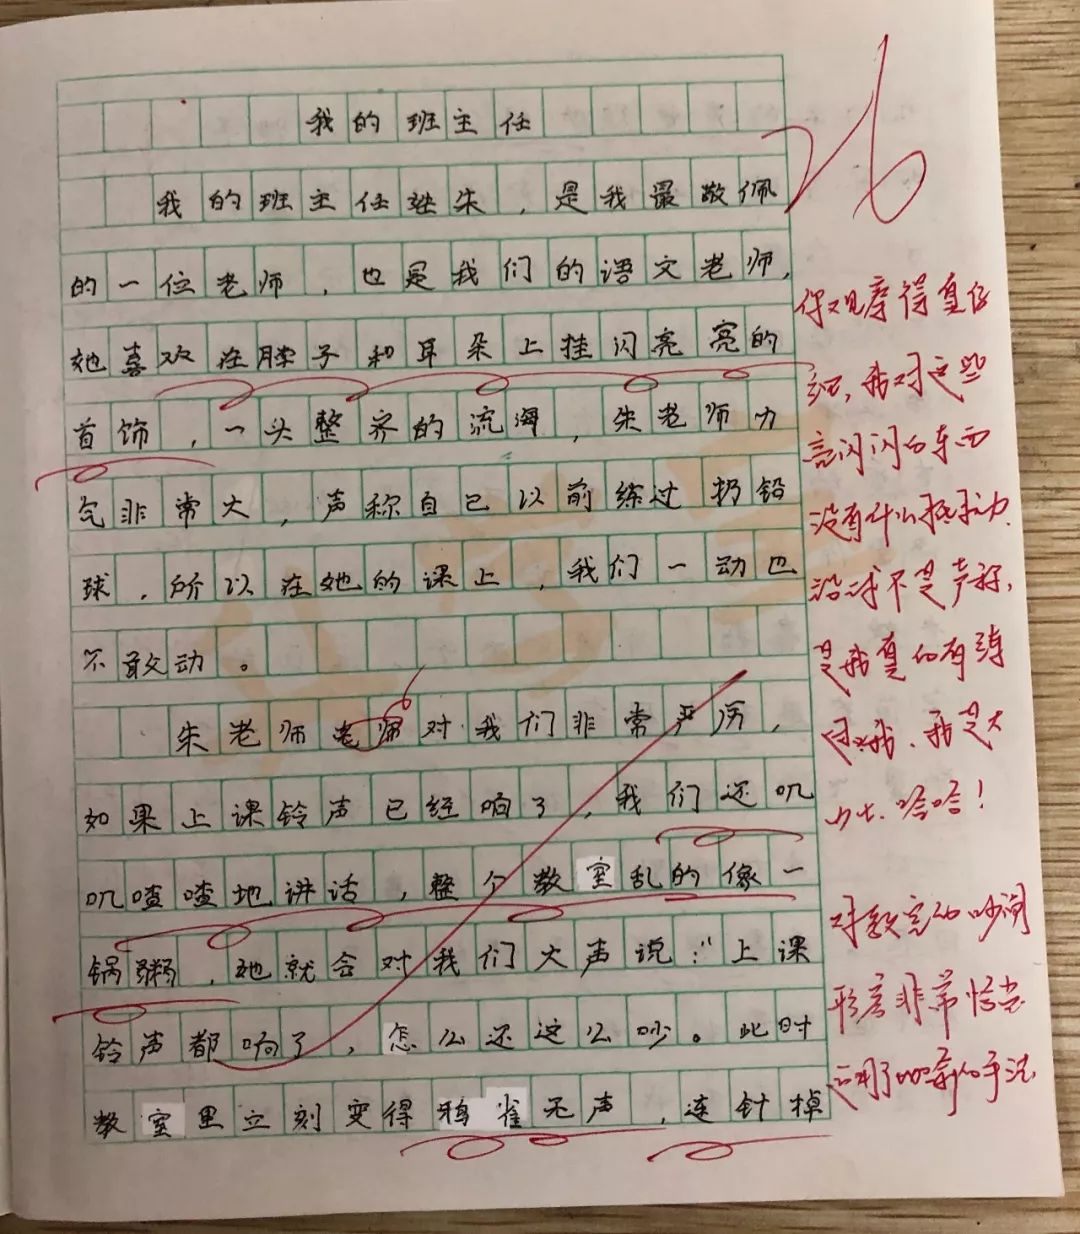 我的班主任
26
我的班主任姓朱，是我最敬佩
的一位老师，也是我们的语文老师，
她喜欢在脖子和耳朵上挂闪亮亮的
首饰，一头整齐的流海，朱老师力
气非常大，声称自己以前练过扔铅
球，所以在她的课上，我们一动也
不敢动。
朱老师老师对我们非常严厉，
如果上课铃声已经响了，我们还叽
叽喳喳地讲话，整个教室乱的像一
锅粥，她就会对我们大声说："上课
铃声都响了，怎么还这么吵。此时
教室里立刻变得鸦雀无声，连针掉
你观察得真仔
细，我对这些
亮闪闪的东西
没有什么抵抗力，
铅球不是声称，
是我真的有练
过哦，我是大
力士，哈哈！
对教室的吵闹
形容非常恰当
运用了比喻的手法